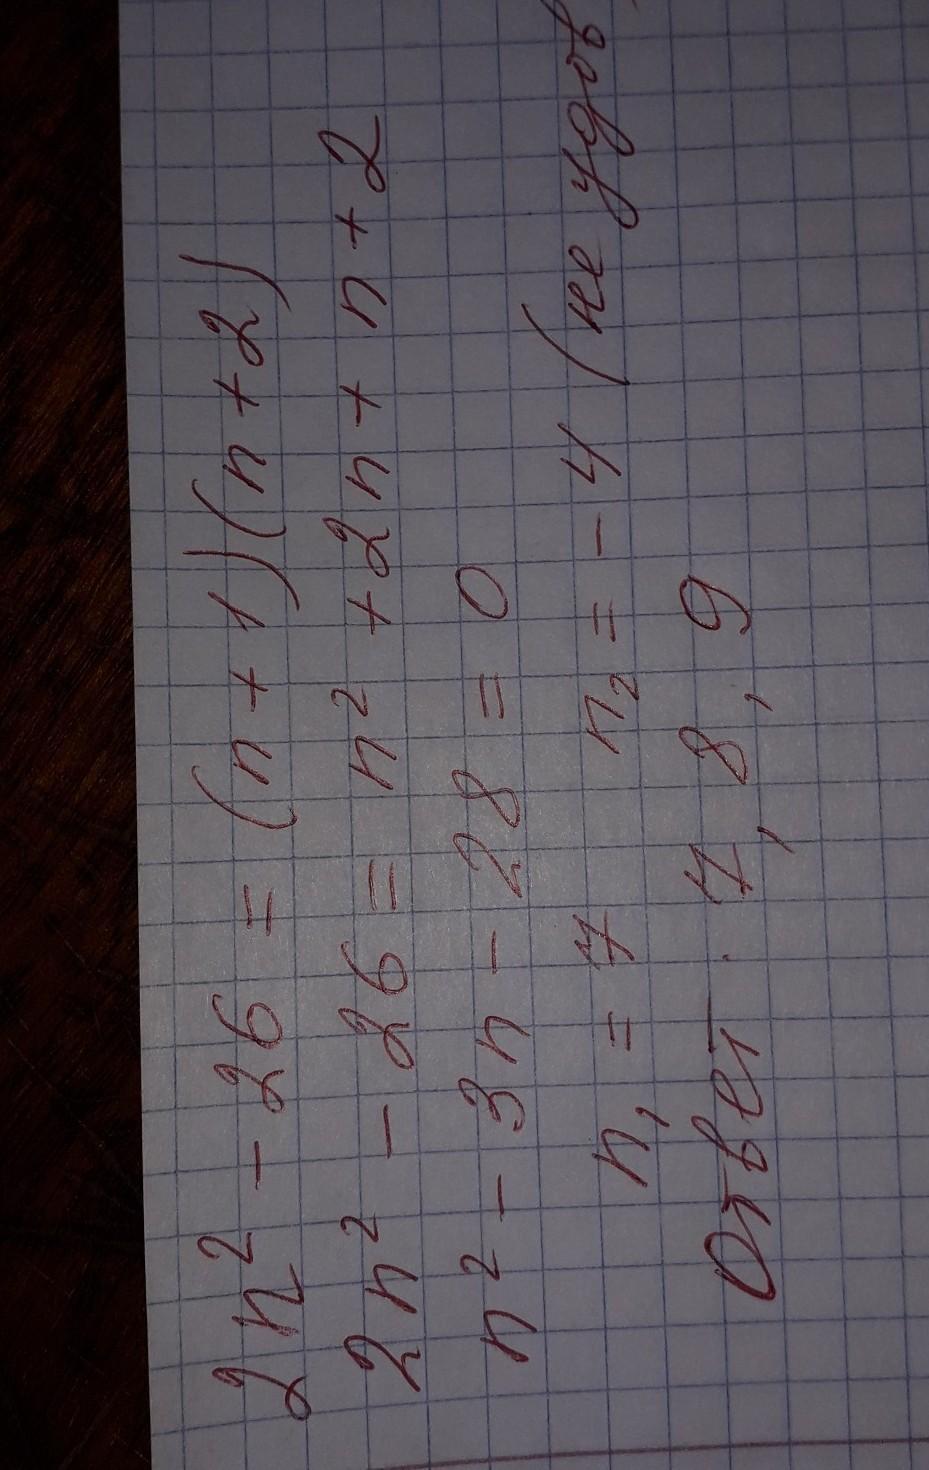 2n² - 26 = (n + 1)(n + 2)
2n² - 26 = n² + 2n + n + 2
n² - 3n - 28 = 0
n₁ = 7 n₂ = - 4 (не удов.
Ответ. 7, 8, 9